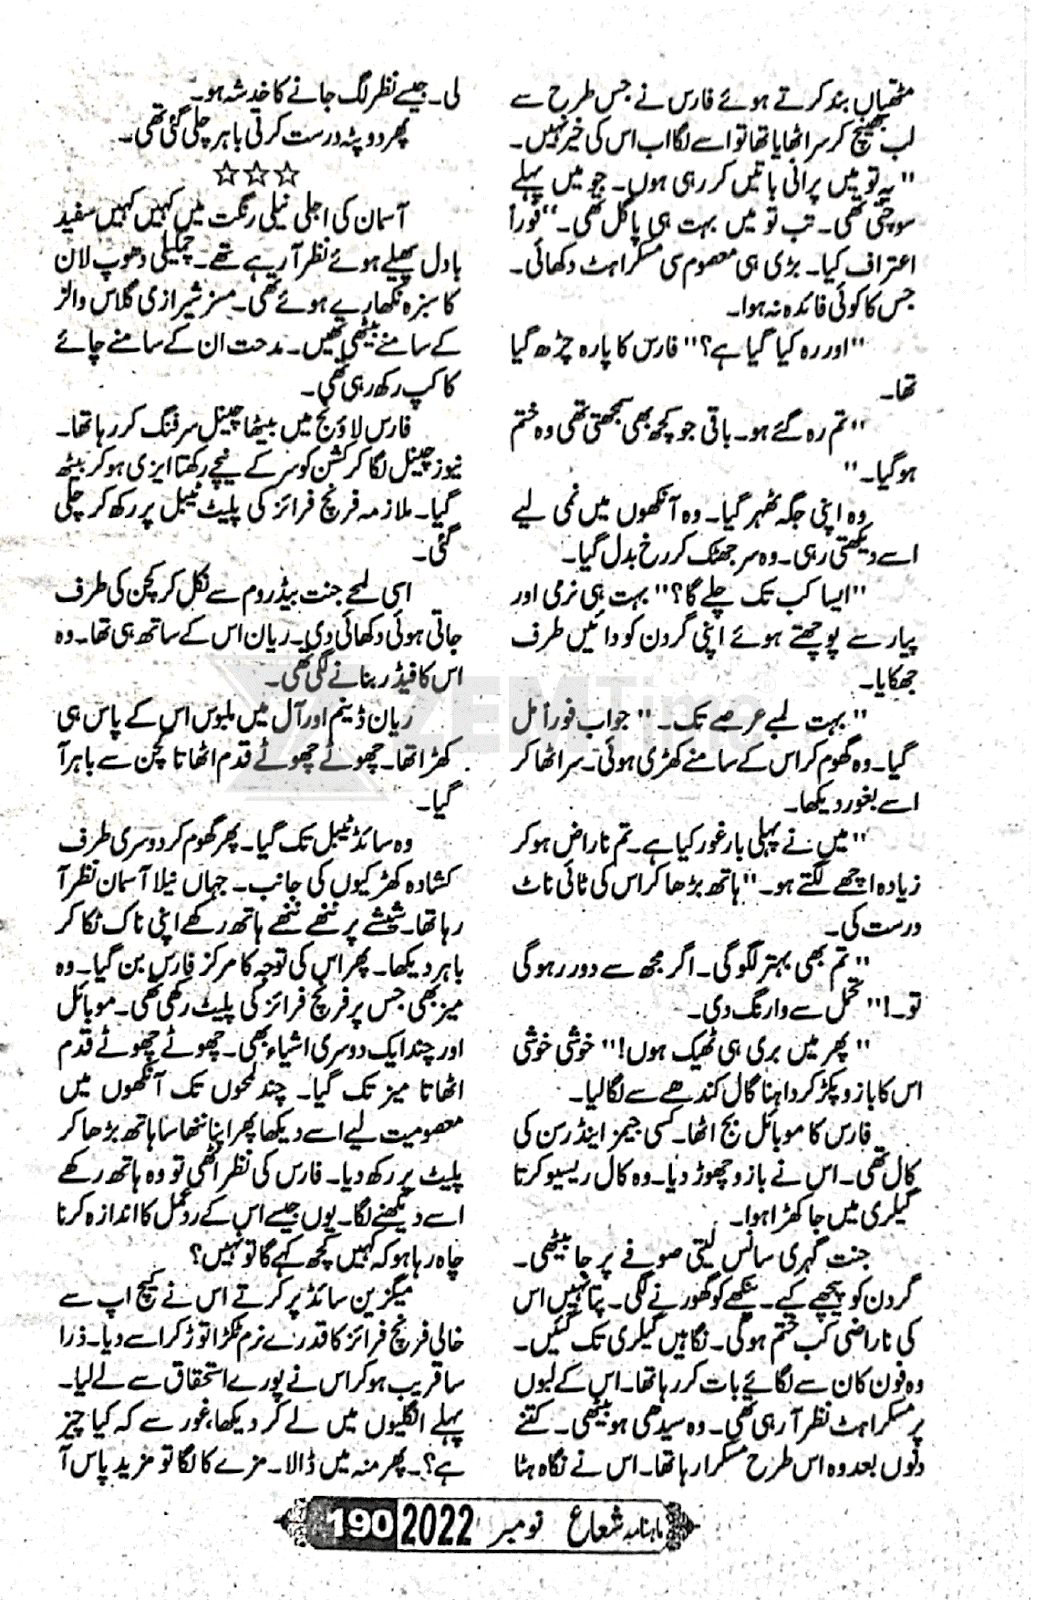 مٹھیاں بند کرتے ہوئے فارس نے جس طرح سے
لب بھینچ کر سر اٹھایا تھا تو اسے لگا اب اس کی خیر نہیں۔
"یہ تو میں پرانی باتیں کر رہی ہوں۔ جو میں پہلے
سوچتی تھی۔ تب تو میں بہت ہی پاگل تھی۔" فوراً
اعتراف کیا۔ بڑی ہی معصوم سی مسکراہٹ دکھائی۔
جس کا کوئی فائدہ نہ ہوا۔
"اور رہ کیا گیا ہے؟" فارس کا پارہ چڑھ گیا
تھا۔
"تم رہ گئے ہو۔ باقی جو کچھ بھی سمجھتی تھی وہ ختم
ہو گیا۔"
وہ اپنی جگہ ٹھہر گیا۔ وہ آنکھوں میں نمی لیے
اسے دیکھتی رہی۔ وہ سر جھٹک کر رخ بدل گیا۔
"ایسا کب تک چلے گا؟" بہت ہی نرمی اور
پیار سے پوچھتے ہوئے اپنی گردن کو دائیں طرف
جھکایا۔
"بہت لمبے عرصے تک۔" جواب فوراً مل
گیا۔ وہ گھوم کر اس کے سامنے کھڑی ہوئی۔ سر اٹھا کر
اسے بغور دیکھا۔
"میں نے پہلی بار غور کیا ہے۔ تم ناراض ہو کر
زیادہ اچھے لگتے ہو۔" ہاتھ بڑھا کر اس کی ٹائی ناٹ
درست کی۔
"تم بھی بہتر لگو گی۔ اگر مجھ سے دور رہو گی
تو۔!" تحمل سے وارنگ دی۔
"پھر میں بری ہی ٹھیک ہوں!" خوشی خوشی
اس کا بازو پکڑ کر داہنا گال کندھے سے لگا لیا۔
فارس کا موبائل بج اٹھا۔ کسی جیمز اینڈرسن کی
کال تھی۔ اس نے بازو چھوڑ دیا۔ وہ کال ریسیو کرتا
گیلری میں جا کھڑا ہوا۔
جنت گہری سانس لیتی صوفے پر جا بیٹھی۔
گردن کو پیچھے کیے۔ پنکھے کو گھورنے لگی۔ پتا نہیں اس
کی ناراضی کب ختم ہوگی۔ نگاہیں گیلری تک گئیں۔
وہ فون کان سے لگائے بات کر رہا تھا۔ اس کے لبوں
پر مسکراہٹ نظر آ رہی تھی۔ وہ سیدھی ہو بیٹھی۔ کتنے
دنوں بعد وہ اس طرح مسکرا رہا تھا۔ اس نے نگاہ ہٹا
لی۔ جیسے نظر لگ جانے کا خدشہ ہو۔
پھر دوپٹہ درست کرتی باہر چلی گئی تھی۔
☆☆☆
آسمان کی اجلی نیلی رنگت میں کہیں کہیں سفید
بادل پھیلے ہوئے نظر آ رہے تھے۔ چمکیلی دھوپ لان
کا سبزہ نکھارے ہوئے تھی۔ مسز شیرازی گلاس والز
کے سامنے بیٹھی تھیں۔ مدحت ان کے سامنے چائے
کا کپ رکھ رہی تھی۔
فارس لاؤنج میں بیٹھا چینل سرفنگ کر رہا تھا۔
نیوز چینل لگا کر کشن کو سر کے نیچے رکھتا ایزی ہو کر بیٹھ
گیا۔ ملازمہ فرنچ فرائز کی پلیٹ ٹیبل پر رکھ کر چلی
گئی۔
اسی لمحے جنت بیڈ روم سے نکل کر کچن کی طرف
جاتی ہوئی دکھائی دی۔ ریان اس کے ساتھ ہی تھا۔ وہ
اس کا فیڈر بنانے لگی تھی۔
ریان ڈینم اور آل میں ملبوس اس کے پاس ہی
کھڑا تھا۔ چھوٹے چھوٹے قدم اٹھاتا کچن سے باہر آ
گیا۔
وہ سائڈ ٹیبل تک گیا۔ پھر گھوم کر دوسری طرف
کشادہ کھڑکیوں کی جانب۔ جہاں نیلا آسمان نظر آ
رہا تھا۔ شیشے پر ننھے ننھے ہاتھ رکھے اپنی ناک ٹکا کر
باہر دیکھا۔ پھر اس کی توجہ کا مرکز فارس بن گیا۔ وہ
میز بھی جس پر فرنچ فرائز کی پلیٹ رکھی تھی۔ موبائل
اور چند ایک دوسری اشیاء بھی۔ چھوٹے چھوٹے قدم
اٹھاتا میز تک گیا۔ چند لمحوں تک آنکھوں میں
معصومیت لیے اسے دیکھا پھر اپنا ننھا سا ہاتھ بڑھا کر
پلیٹ پر رکھ دیا۔ فارس کی نظر اٹھی تو وہ ہاتھ رکھے
اسے دیکھنے لگا۔ یوں جیسے اس کے ردعمل کا اندازہ کرنا
چاہ رہا ہو کہ کہیں کچھ کہے گا تو نہیں؟
میگزین سائڈ پر کرتے اس نے کیچ اپ سے
خالی فرنچ فرائز کا قدرے نرم ٹکڑا توڑ کر اسے دیا۔ ذرا
سا قریب ہو کر اس نے پورے استحقاق سے لے لیا۔
پہلے انگلیوں میں لے کر دیکھا، غور سے کہ کیا چیز
ہے؟۔ پھر منہ میں ڈالا۔ مزے کا لگا تو مزید پاس آ
ماہنامہ شعاع نومبر 2022 190
ZEMTime